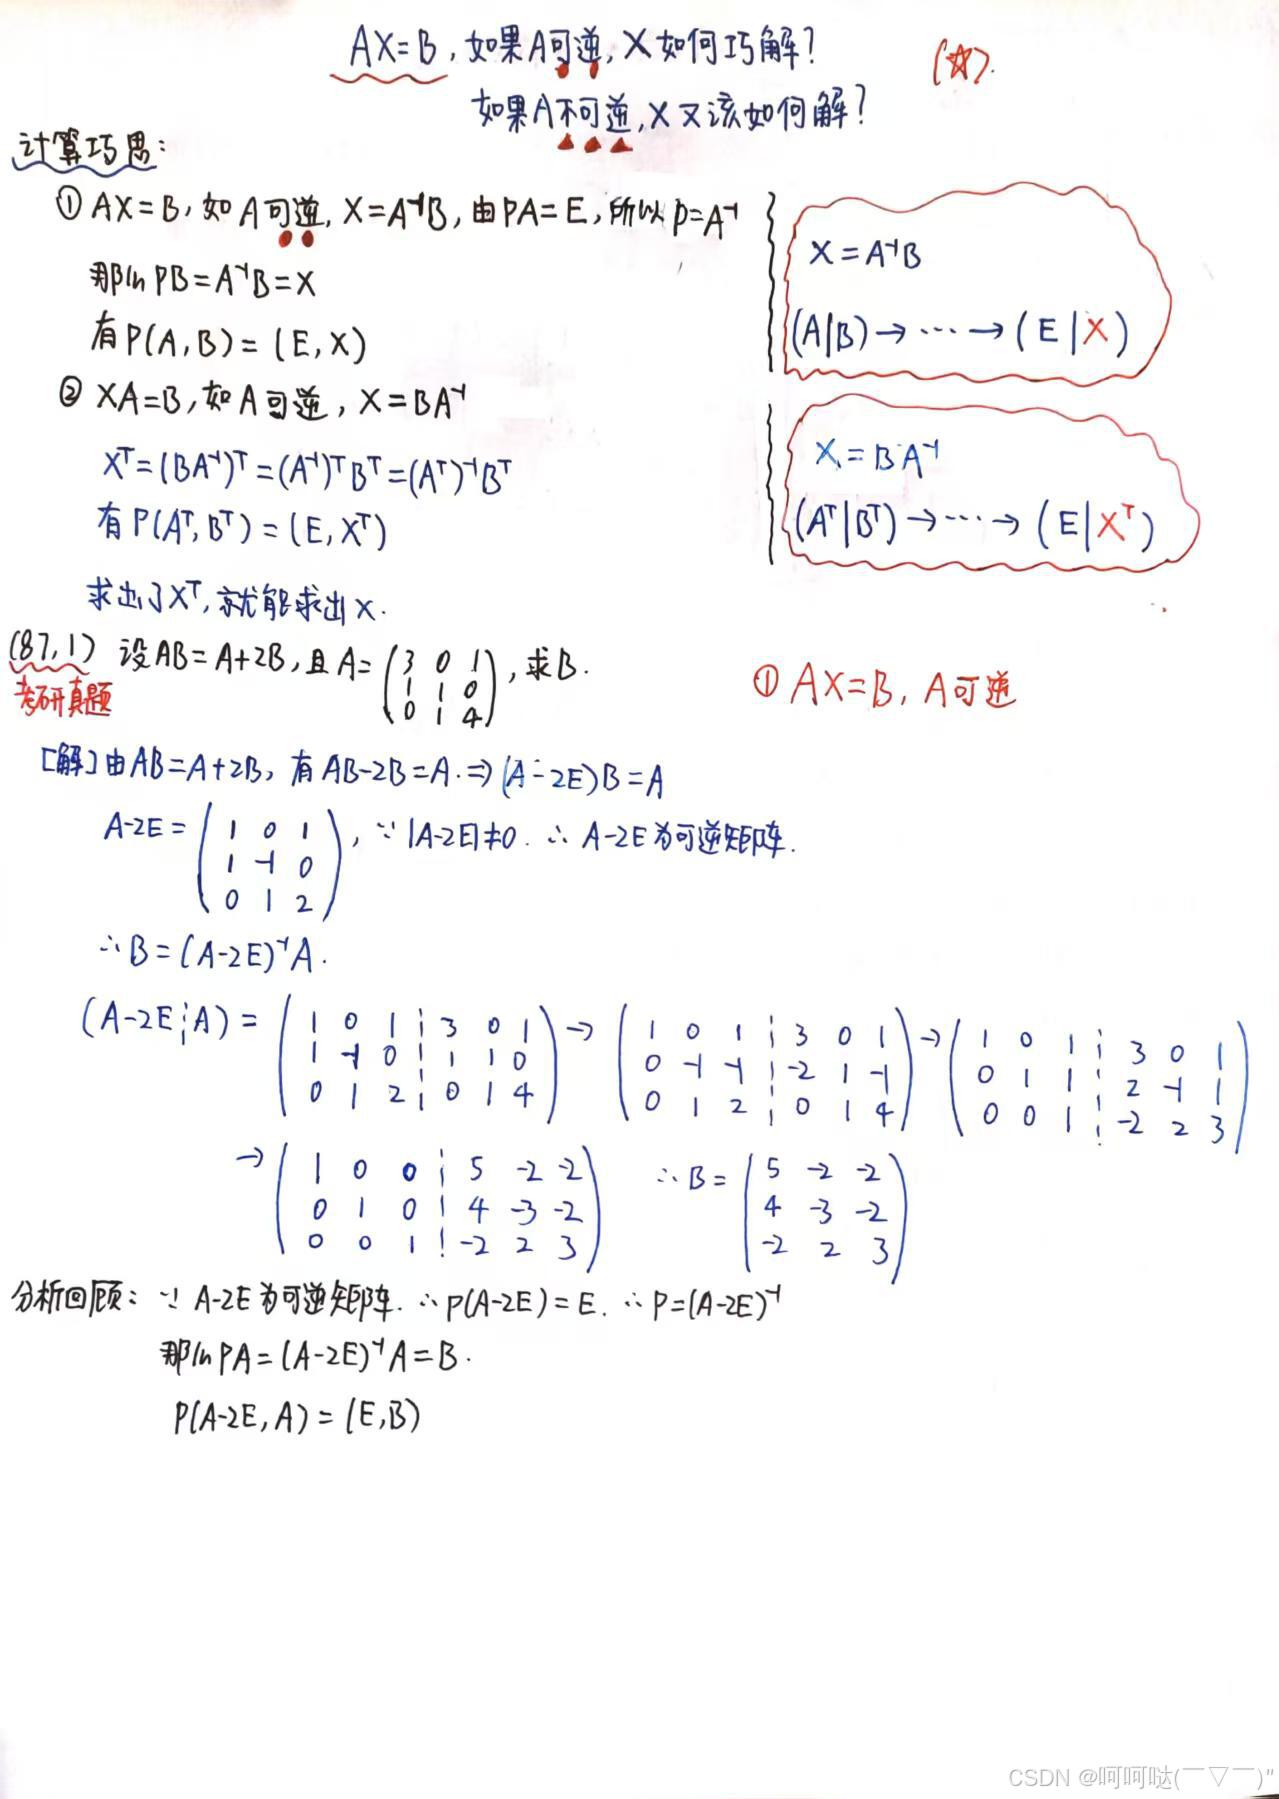 AX=B,如果A可逆,X如何巧解?
(☆).
如果A不可逆,X又该如何解?
计算巧思:
① AX=B,如A可逆,X=A⁻¹B,由PA=E,所以P=A⁻¹
那么PB=A⁻¹B=X
有P(A,B)=(E,X)
X=A⁻¹B
(A|B)→⋯→(E|X)
② XA=B,如A可逆,X=BA⁻¹
Xᵀ=(BA⁻¹)ᵀ=(A⁻¹)ᵀBᵀ=(Aᵀ)⁻¹Bᵀ
有P(Aᵀ,Bᵀ)=(E,Xᵀ)
求出了Xᵀ,就能求出X.
X=BA⁻¹
(Aᵀ|Bᵀ)→⋯→(E|Xᵀ)
(87,1) 设AB=A+2B,且A=(3 0 1
1 1 0
0 1 4),求B.
考研真题
① AX=B, A可逆
[解]由AB=A+2B,有AB-2B=A.⇒(A-2E)B=A
A-2E=(1 0 1
1 -1 0
0 1 2),∵|A-2E|≠0.∴A-2E为可逆矩阵.
∴B=(A-2E)⁻¹A.
(A-2E¦A)=(1 0 1 ¦ 3 0 1)→(1 0 1 ¦ 3 0 1)→(1 0 1 ¦ 3 0 1)
(1 -1 0 ¦ 1 1 0) (0 -1 -1 ¦ -2 1 -1) (0 1 1 ¦ 2 -1 1)
(0 1 2 ¦ 0 1 4) (0 1 2 ¦ 0 1 4) (0 0 1 ¦ -2 2 3)
→(1 0 0 ¦ 5 -2 -2) ∴B=(5 -2 -2)
(0 1 0 ¦ 4 -3 -2) (4 -3 -2)
(0 0 1 ¦ -2 2 3) (-2 2 3)
分析回顾:∵A-2E为可逆矩阵.∴P(A-2E)=E.∴P=(A-2E)⁻¹
那么PA=(A-2E)⁻¹A=B.
P(A-2E,A)=(E,B)
CSDN @呵呵哒(￣▽￣)"